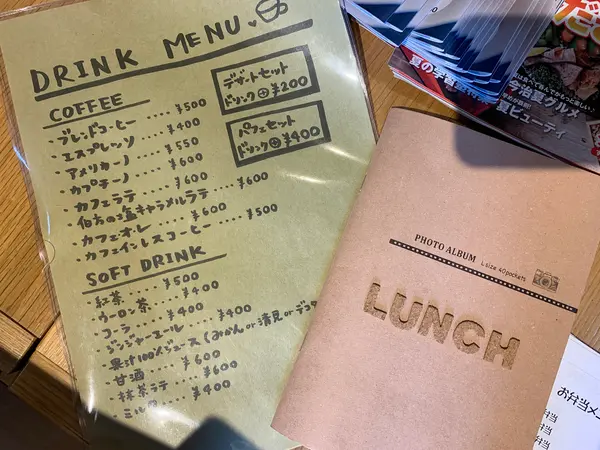 DRINK MENU
デザートセット
ドリンク⊕¥200
パフェセット
ドリンク⊕¥400
COFFEE
・ブレンドコーヒー‥‥¥500
・エスプレッソ‥‥¥400
・アメリカーノ‥‥¥550
・カプチーノ‥‥¥600
・カフェラテ‥‥¥600
・伯方の塩キャラメルラテ‥‥¥600
・カフェオ・レ‥‥¥600
・カフェインレスコーヒー‥‥¥500
SOFT DRINK
・紅茶‥‥¥500
・ウーロン茶‥‥¥400
・コーラ‥‥¥400
・ジンジャーエール‥‥¥400
・果汁100%ジュース(みかんor清見orデコポ
・甘酒‥‥¥600
・抹茶ラテ‥‥¥600
・ミルク‥‥¥400
PHOTO ALBUM L size 40pockets
LUNCH
今治夏グルメ
夏ビューティ
お弁当メニ
弁当
弁当